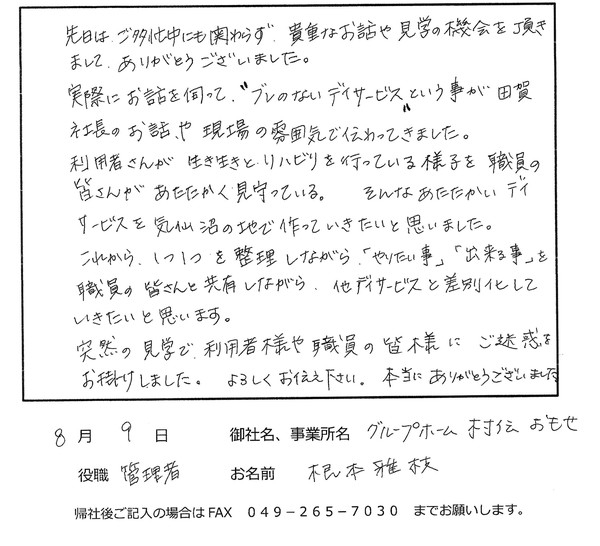 先日は、ご多忙中にも関わらず、貴重なお話や見学の機会を頂き
まして、ありがとうございました。
実際にお話を伺って、"ブレのないデイサービス"という事が田賀
社長のお話や現場の雰囲気で伝わってきました。
利用者さんが生き生きとリハビリを行っている様子を職員の
皆さんがあたたかく見守っている。 そんなあたたかいデイ
サービスを気仙沼の地で作っていきたいと思いました。
これから、1つ1つを整理しながら、「やりたい事」「出来る事」を
職員の皆さんと共有しながら、他デイサービスと差別化して
いきたいと思います。
突然の見学で、利用者様や職員の皆様にご迷惑を
お掛けしました。 よろしくお伝え下さい。 本当にありがとうございました
8月9日 御社名、事業所名 グループホーム村伝おもせ
役職 管理者 お名前 根本雅枝
帰社後ご記入の場合はFAX 049-265-7030 までお願いします。